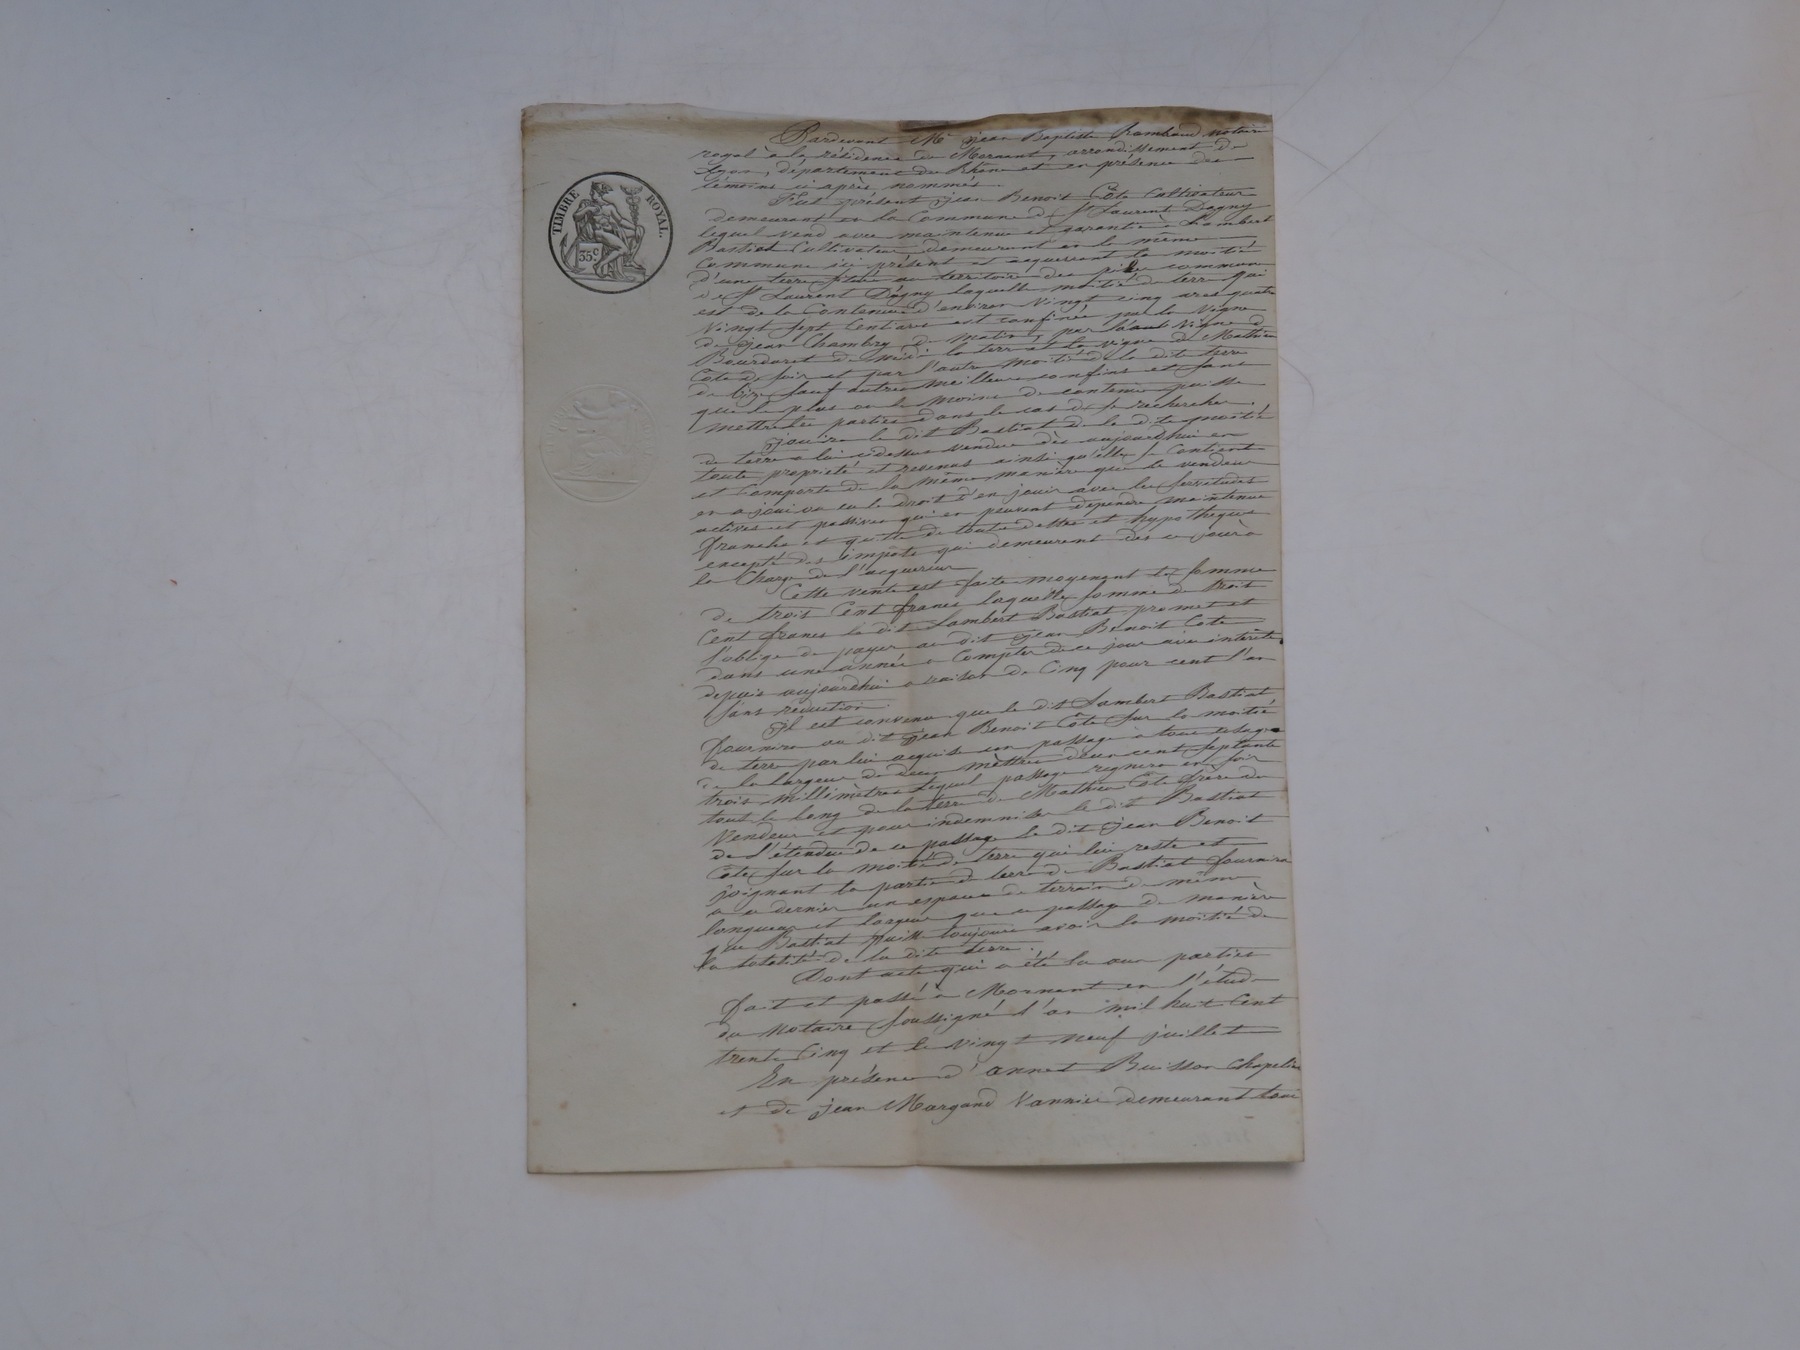 TIMBRE ROYAL.
35.c
Pardevant Me Jean Baptiste Rambaud notaire
royal à la résidence de Mornant, arrondissement de
Lyon, département du Rhône et en présence des
témoins ci après nommés.
Fut présent Jean Benoit Côte Cultivateur
demeurant en la Commune de St Laurent Dagny
lequel vend avec maintenue et garantie à Lambert
Bastiat Cultivateur demeurant en la même
Commune ici présent et acquerrant la moitié
d'une terre située au territoire des commune
de St Laurent Dagny laquelle moitié de terre qui
est de la Contenue d'environ vingt cinq ares quatre
vingt sept Centiares est confinée par la vigne
de Jean Chambry de matin, par la vigne de
Bourdaret de midi la terre et la vigne de Mathieu
Côte de soir et par l'autre moitié de la dite terre
de bize sauf autres meilleurs confins et sans
que le plus ou le moins de contenue puisse
mettre les parties dans le cas de se rechercher.
Jouira le dit Bastiat de la dite moitié
de terre a lui cidessus vendue dès aujourdhui en
toute propriété et revenus ainsi qu'elle se Contient
et Comporte de la même manière que le vendeur
en a joui ou eu le droit d'en jouir avec les servitudes
actives et passives qui en peuvent dépendre maintenue
franche et quitte de toute dettes et hypothèques
excepté des impôts qui demeurent dès ce jour à
la Charge de l'acquereur
Cette vente est faite moyenant la somme
de trois Cent francs laquelle somme de trois
Cent francs le dit Lambert Bastiat promet et
s'oblige de payer au dit Jean Benoit Côte
dans une année a Compter de ce jour avec intérêts
depuis aujourdhui a raison de Cinq pour cent l'an
sans réduction.
Il est convenu que le dit Lambert Bastiat
fournira au dit Jean Benoit Côte sur la moitié
de terre par lui acquise un passage à tous usages
de la largeur de deux mètres deux cent septante
trois millimètres lequel passage regnera en soir
tout le long de la terre de Mathieu Côte frère du
Vendeur et pour indemniser le dit Bastiat
de l'étendue de ce passage le dit Jean Benoit
Côte sur la moitié de terre qui lui reste et
joignant la partie de terre de Bastiat fournira
a ce dernier un espace de terrain de même
longueur et largeur que ce passage de manière
que Bastiat puisse toujours avoir la moitié de
la totalité de la dite terre.
Dont acte qui a été lu aux parties
fait et passé à Mornant en l'étude
du Notaire soussigné l'an mil huit Cent
trente Cinq et le vingt neuf juillet
En présence d'annet Buisson Chapelier
et de jean Margand Vannier demeurant tous